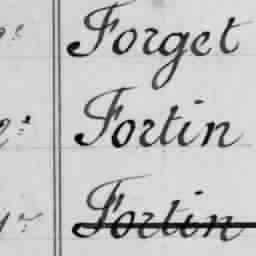 Forget
Fortin
Fortin